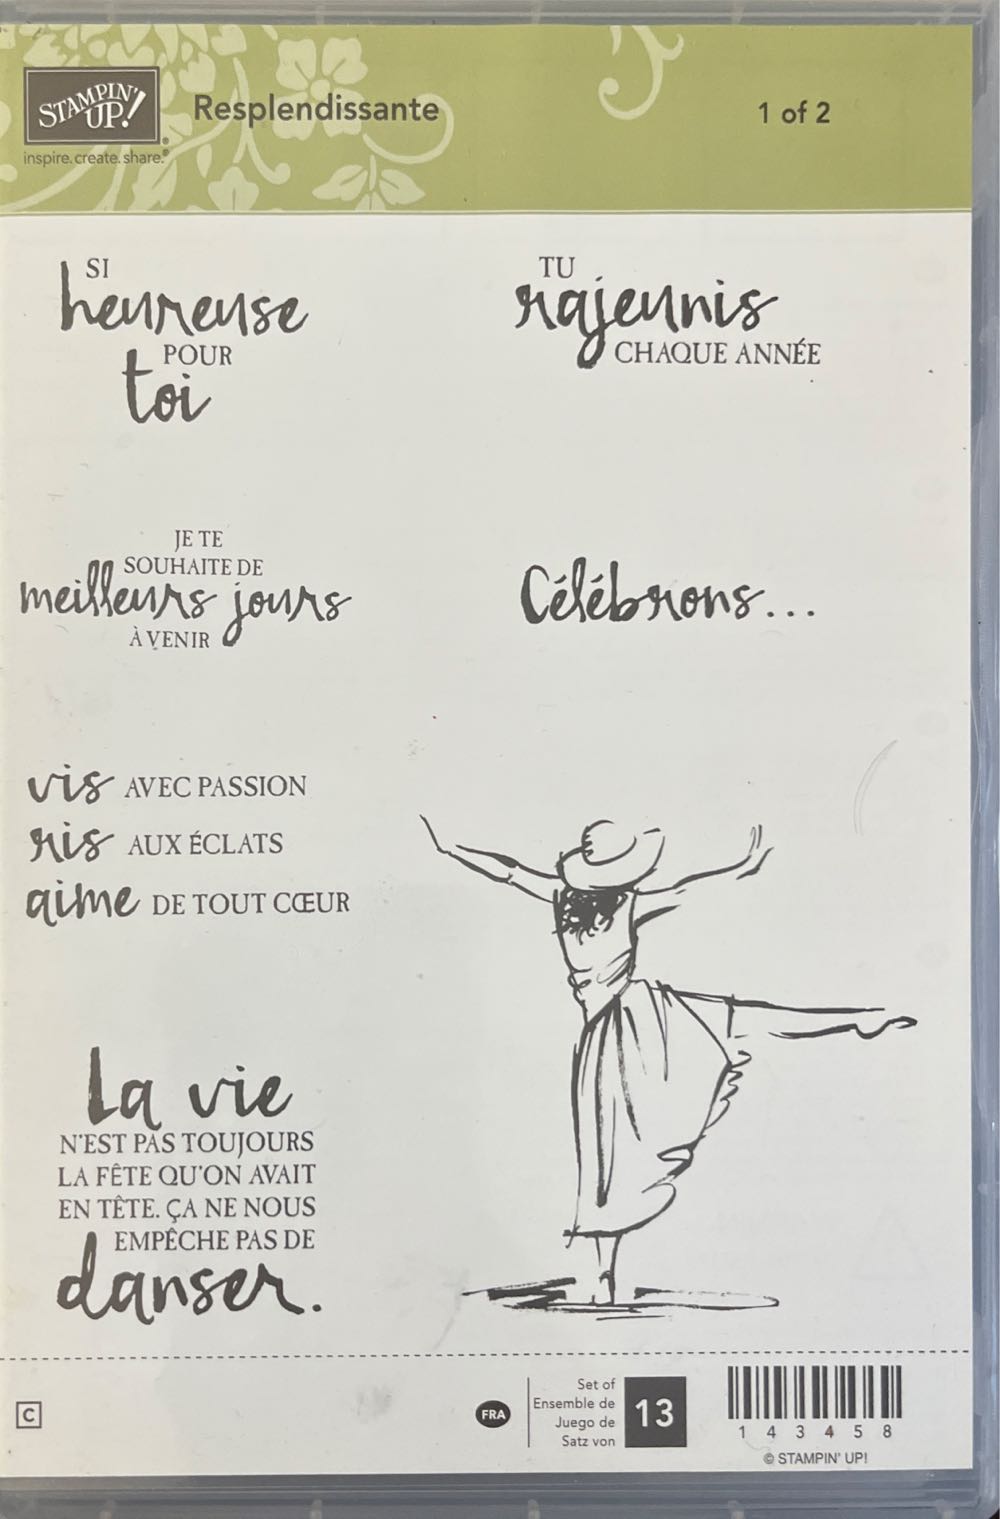 STAMPIN' UP!
inspire. create. share.
Resplendissante
1 of 2
SI
heureuse
POUR
toi
TU
rajeunis
CHAQUE ANNÉE
JE TE
SOUHAITE DE
meilleurs jours
À VENIR
Célébrons...
vis AVEC PASSION
ris AUX ÉCLATS
aime DE TOUT CŒUR
La vie
N'EST PAS TOUJOURS
LA FÊTE QU'ON AVAIT
EN TÊTE. ÇA NE NOUS
EMPÊCHE PAS DE
danser.
C
FRA
Set of
Ensemble de
Juego de
Satz von
13
1 4 3 4 5 8
© STAMPIN' UP!